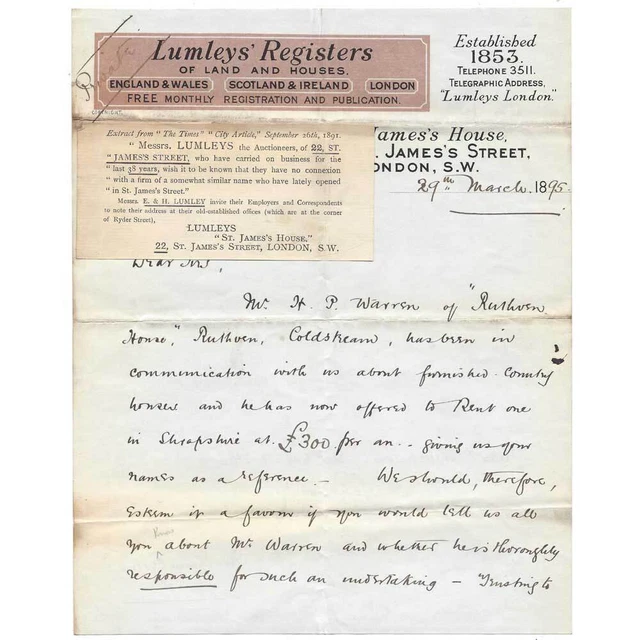 Private
Lumleys' Registers
OF LAND AND HOUSES.
ENGLAND & WALES SCOTLAND & IRELAND LONDON
FREE MONTHLY REGISTRATION AND PUBLICATION.
COPYRIGHT
Established
1853.
TELEPHONE 3511.
TELEGRAPHIC ADDRESS,
"Lumleys London."
Extract from "The Times" "City Article," September 26th, 1891.
"Messrs. LUMLEYS the Auctioneers, of 22, ST.
"JAMES'S STREET, who have carried on business for the
"last 38 years, wish it to be known that they have no connexion
"with a firm of a somewhat similar name who have lately opened
"in St. James's Street."
Messrs. E. & H. LUMLEY invite their Employers and Correspondents
to note their address at their old-established offices (which are at the corner
of Ryder Street),
LUMLEYS
"ST. JAMES'S HOUSE,"
22, ST. JAMES'S STREET, LONDON, S.W.
James's House,
. JAMES'S STREET,
ONDON, S.W.
29th March 1895
Dear Sir,
Mr. H. P. Warren of "Ruthven
House," Ruthven, Coldstream, has been in
communication with us about furnished Country
houses and he has now offered to Rent one
in Shropshire at £300 per an. - giving us your
names as a reference. - We should, therefore,
Esteem it a favour if you would tell us all
you know about Mr. Warren and whether he is thoroughly
responsible for such an undertaking - Trusting to